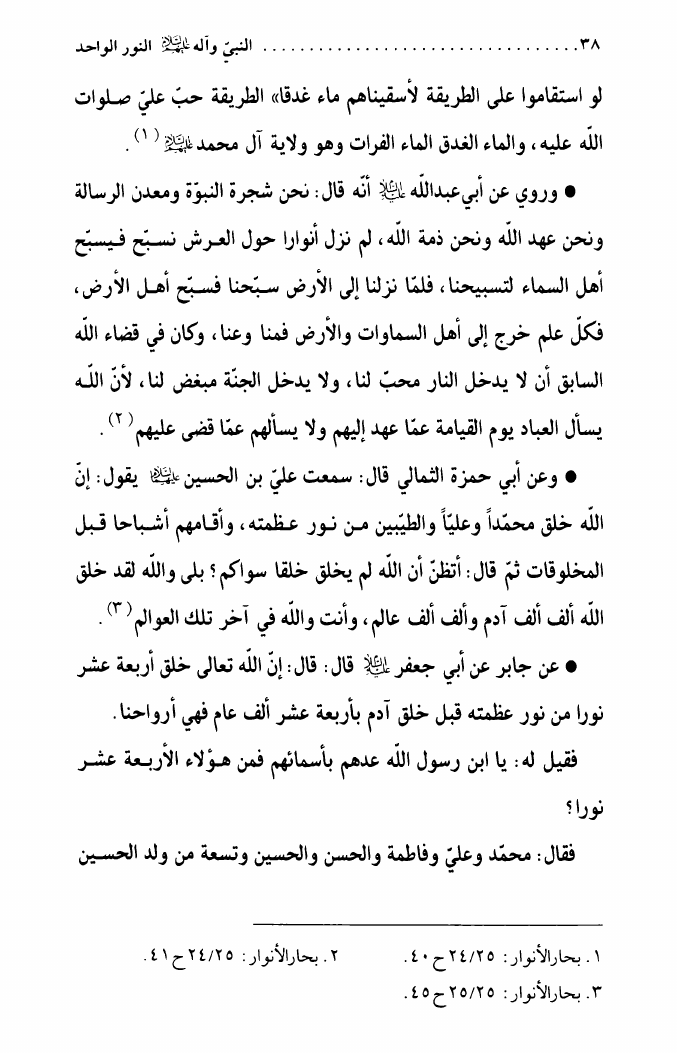 ٣٨ ................................ النبيّ وآله عليهم السلام النور الواحد
لو استقاموا على الطريقة لأسقيناهم ماء غدقا» الطريقة حبّ عليّ صلوات
اللّه عليه، والماء الغدق الماء الفرات وهو ولاية آل محمد عليهم السلام (١).
● وروي عن أبي‌عبداللّه عليه السلام أنّه قال: نحن شجرة النبوّة ومعدن الرسالة
ونحن عهد اللّه ونحن ذمة اللّه، لم نزل أنوارا حول العرش نسبّح فيسبّح
أهل السماء لتسبيحنا، فلمّا نزلنا إلى الأرض سبّحنا فسبّح أهل الأرض،
فكلّ علم خرج إلى أهل السماوات والأرض فمنا وعنا، وكان في قضاء اللّه
السابق أن لا يدخل النار محبّ لنا، ولا يدخل الجنّة مبغض لنا، لأنّ اللّه
يسأل العباد يوم القيامة عمّا عهد إليهم ولا يسألهم عمّا قضى عليهم (٢).
● وعن أبي حمزة الثمالي قال: سمعت عليّ بن الحسين عليهما السلام يقول: إنّ
اللّه خلق محمّداً وعليّاً والطيّبين من نور عظمته، وأقامهم أشباحا قبل
المخلوقات ثمّ قال: أتظنّ أن اللّه لم يخلق خلقا سواكم؟ بلى واللّه لقد خلق
اللّه ألف ألف آدم وألف ألف عالم، وأنت واللّه في آخر تلك العوالم (٣).
● عن جابر عن أبي جعفر عليه السلام قال: قال: إنّ اللّه تعالى خلق أربعة عشر
نورا من نور عظمته قبل خلق آدم بأربعة عشر ألف عام فهي أرواحنا.
فقيل له: يا ابن رسول اللّه عدهم بأسمائهم فمن هؤلاء الأربعة عشر
نورا؟
فقال: محمّد وعليّ وفاطمة والحسن والحسين وتسعة من ولد الحسين
١. بحارالأنوار: ٢٤/٢٥ ح ٤٠. ٢. بحارالأنوار: ٢٤/٢٥ ح ٤١.
٣. بحارالأنوار: ٢٥/٢٥ ح ٤٥.